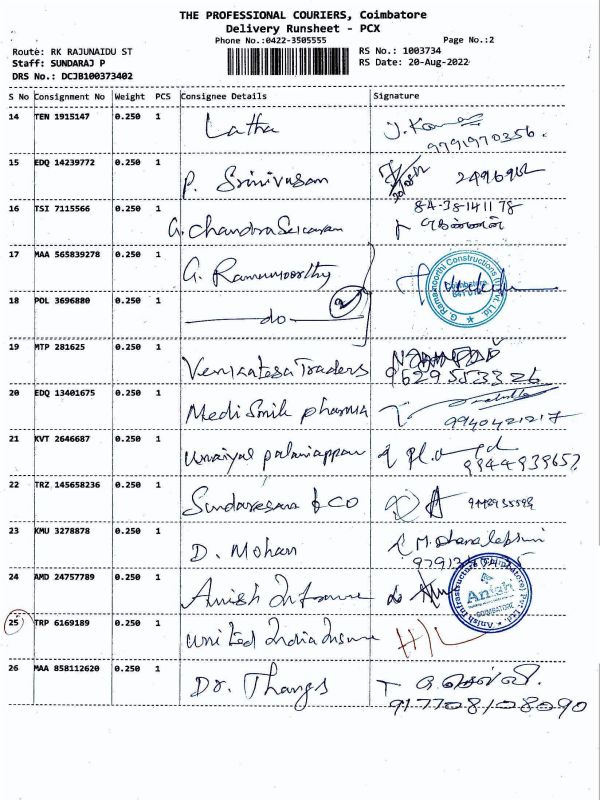 THE PROFESSIONAL COURIERS, Coimbatore
Delivery Runsheet - PCX
Phone No.:0422-3505555 Page No.:2
Route: RK RAJUNAIDU ST RS No.: 1003734
Staff: SUNDARAJ P RS Date: 20-Aug-2022
DRS No.: DCJB100373402
S No Consignment No Weight PCS Consignee Details Signature
14 TEN 1915147 0.250 1 Latha J. Kumar
9791970356.
15 EDQ 14239772 0.250 1 P. Srinivasan 2496962
16 TSI 7115566 0.250 1 G. Chandrasekaran 84-38-1411 78
17 MAA 565839278 0.250 1 G. Ramamoorthy
G. Ramamoorthi Constructions (I) Pvt. Ltd.
Coimbatore
18 POL 3696880 0.250 1 do 2
19 MTP 281625 0.250 1 Venkatesa Traders
9629553326
20 EDQ 13401675 0.250 1 Medi Smile pharma
9940421217
21 KVT 2646687 0.250 1 Unnaiyal palaniappan
9944939657
22 TRZ 145658236 0.250 1 Sundaresan & CO
23 KMU 3278878 0.250 1 D. Mohan M. Dhanalakshmi
24 AMD 24757789 0.250 1 Anish Infra
Anish Infrastructure (Coimbatore) Pvt Ltd.
Anish
COIMBATORE
25 TRP 6169189 0.250 1 United India Insure H/L
26 MAA 858112620 0.250 1 Dr. Thangs
917708108090